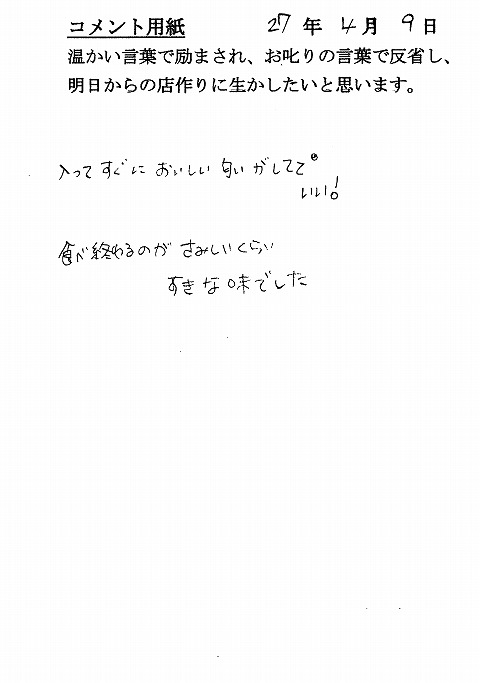 コメント用紙 27年4月9日
温かい言葉で励まされ、お叱りの言葉で反省し、
明日からの店作りに生かしたいと思います。
入ってすぐに おいしい匂いがしてて
いい!
食べ終わるのが さみしいくらい
すきな味でした